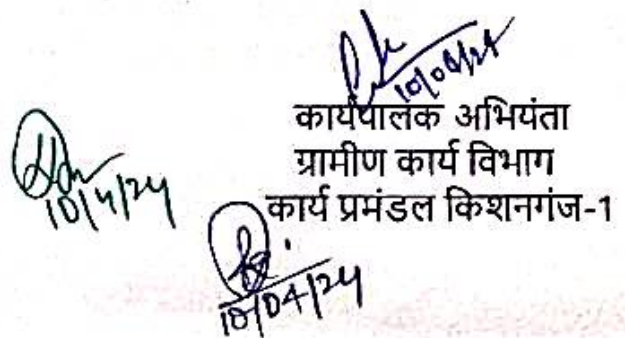 10/04/24
कार्यपालक अभियंता
ग्रामीण कार्य विभाग
10/4/24
कार्य प्रमंडल किशनगंज-1
10/04/24